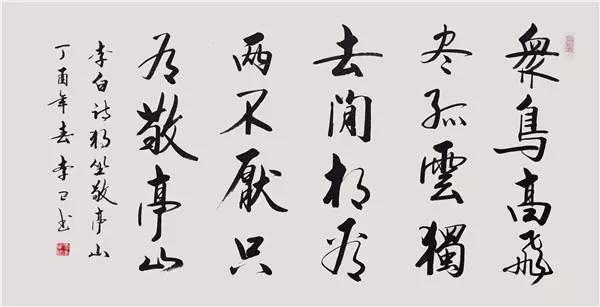 衆鳥高飛
尽孤雲獨
去閒相看
兩不厭只
有敬亭山
李白诗独坐敬亭山
丁酉年春李书